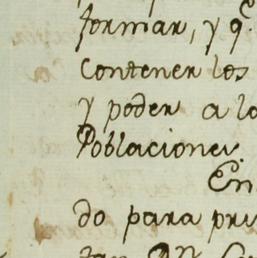 formar, y q.e
contener los
y poder a la
Poblaciones.
En
do para pre